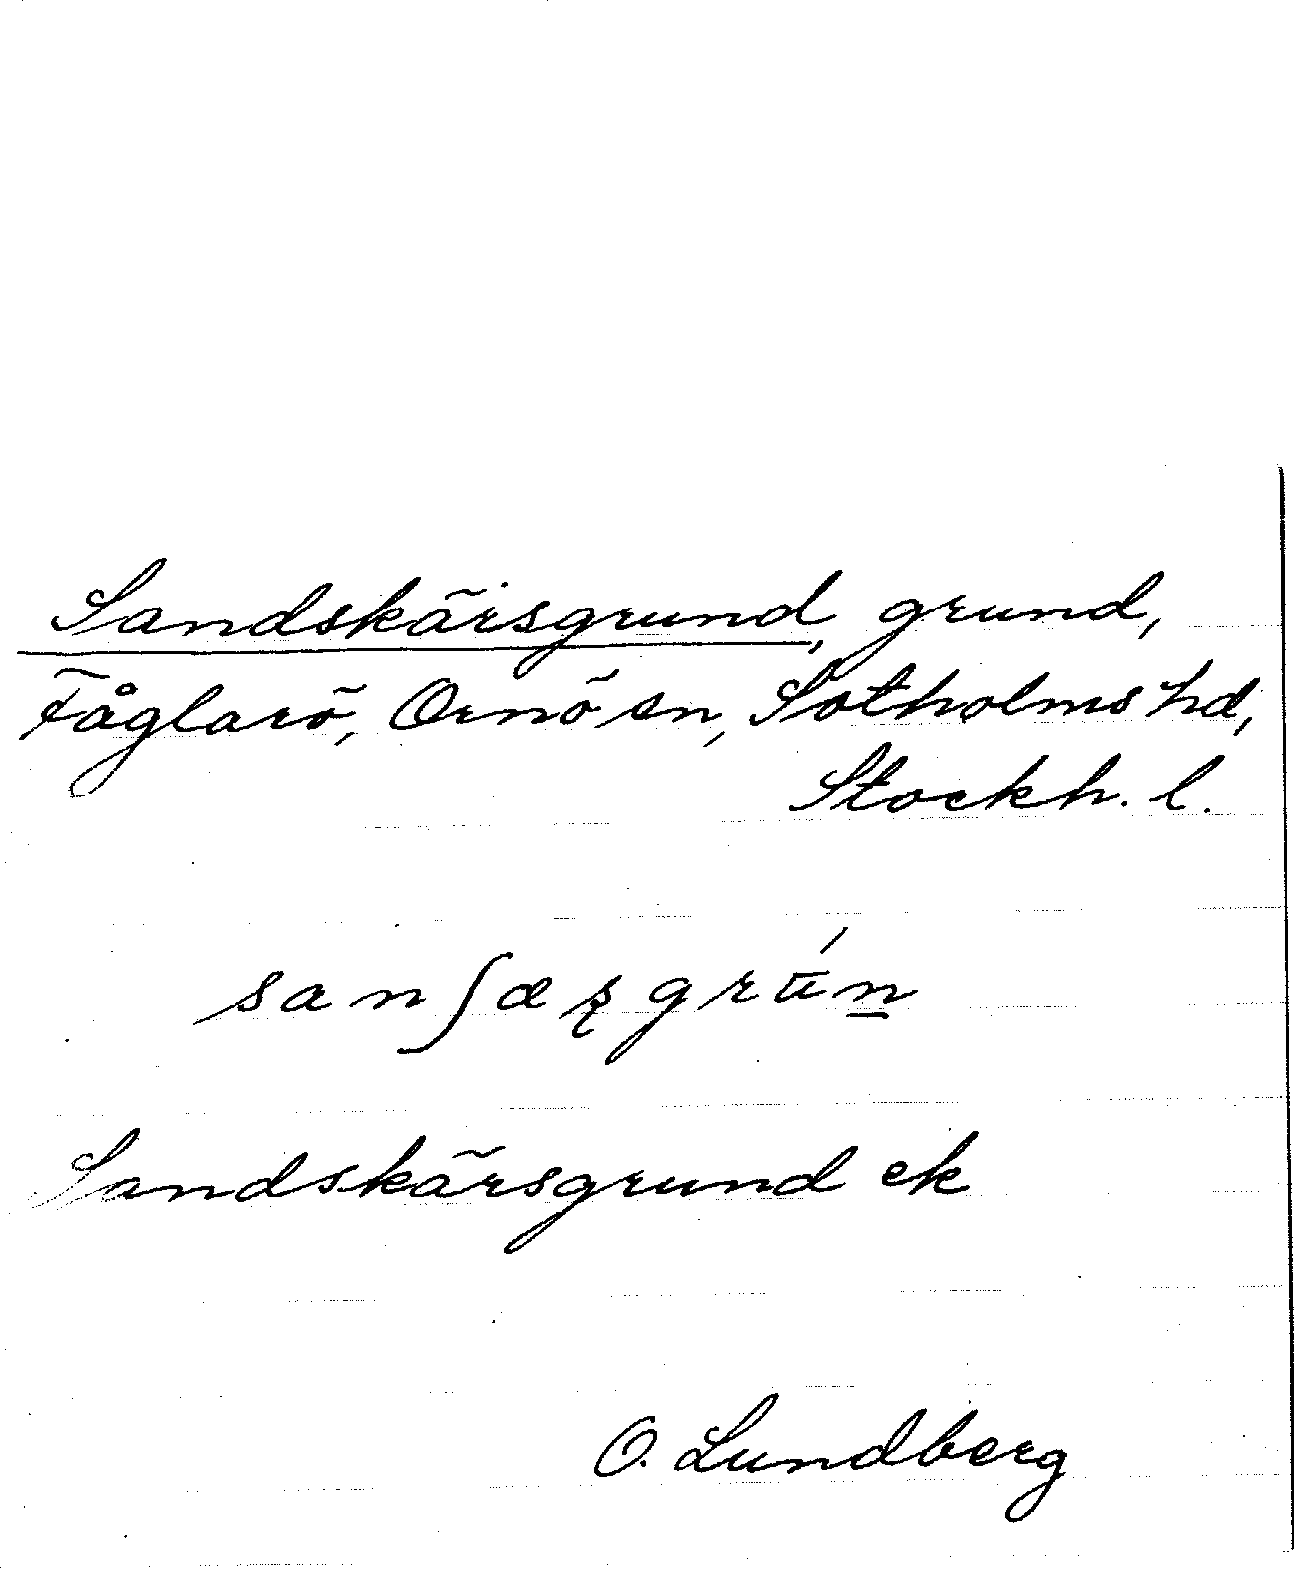 Sandskärsgrund, grund,
Fåglarö, Ornö sn, Sotholms hd,
Stockh. l.
sanʃæʂgru̅́n̲
Sandskärsgrund ek
O. Lundberg